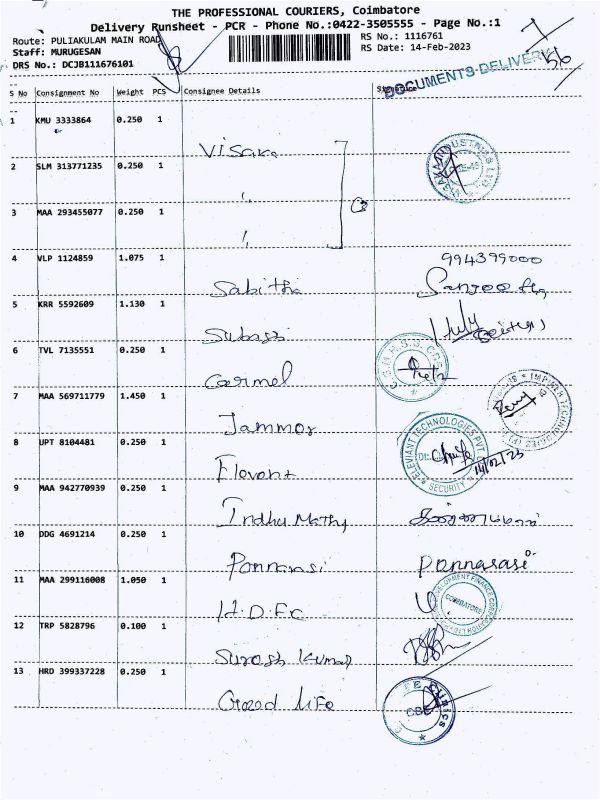 THE PROFESSIONAL COURIERS, Coimbatore
Delivery Runsheet - PCR - Phone No.:0422-3505555 - Page No.:1
Route: PULIAKULAM MAIN ROAD
Staff: MURUGESAN
DRS No.: DCJB111676101
RS No.: 1116761
RS Date: 14-Feb-2023
DOCUMENTS-DELIVERY
S No Consignment No Weight PCS Consignee Details Signature
1 KMU 3333864 0.250 1
Visaka
2 SLM 313771235 0.250 1
3 MAA 293455077 0.250 1
4 VLP 1124859 1.075 1
Sabitha
994399000
5 KRR 5592609 1.130 1
Subash
6 TVL 7135551 0.250 1
Carmel
7 MAA 569711779 1.450 1
Jammor
8 UPT 8104481 0.250 1
Elevant
ELEVIANT TECHNOLOGIES PVT.
SECURITY
14/02/23
9 MAA 942770939 0.250 1
Indhu Mathy
10 DDG 4691214 0.250 1
Ponnarasi Ponnarasi
11 MAA 299116008 1.050 1
H.D.F.C
DEVELOPMENT FINANCE CORPORATION LTD
COIMBATORE
12 TRP 5828796 0.100 1
Suresh Kumar
13 HRD 399337228 0.250 1
Good Life